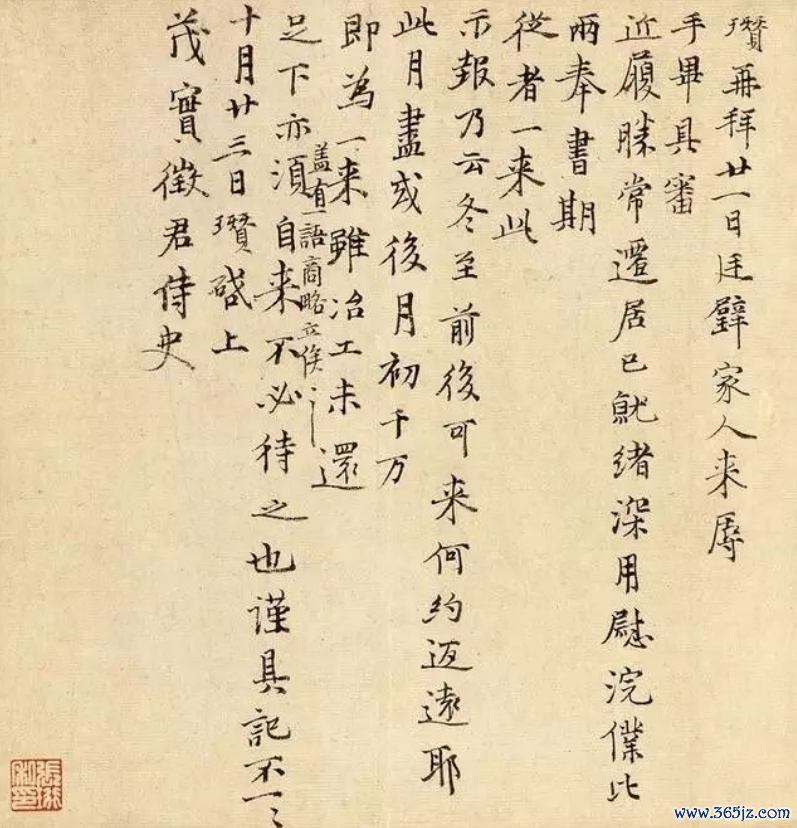 瓚再拜廿一日廷璧家人来辱
手畢具審
近履勝常遷居已就緒深用慰浣僕比
兩奉書期
從者一来此
示報乃云冬至前後可来何約迺遠耶
此月盡或後月初千万
即為一来雖冶工未還
盖有一語商略立俟〻
足下亦須自来不必待之也謹具記不一〻
十月廿三日瓚啓上
茂實徵君侍史
張珩私印
www.365jz.com